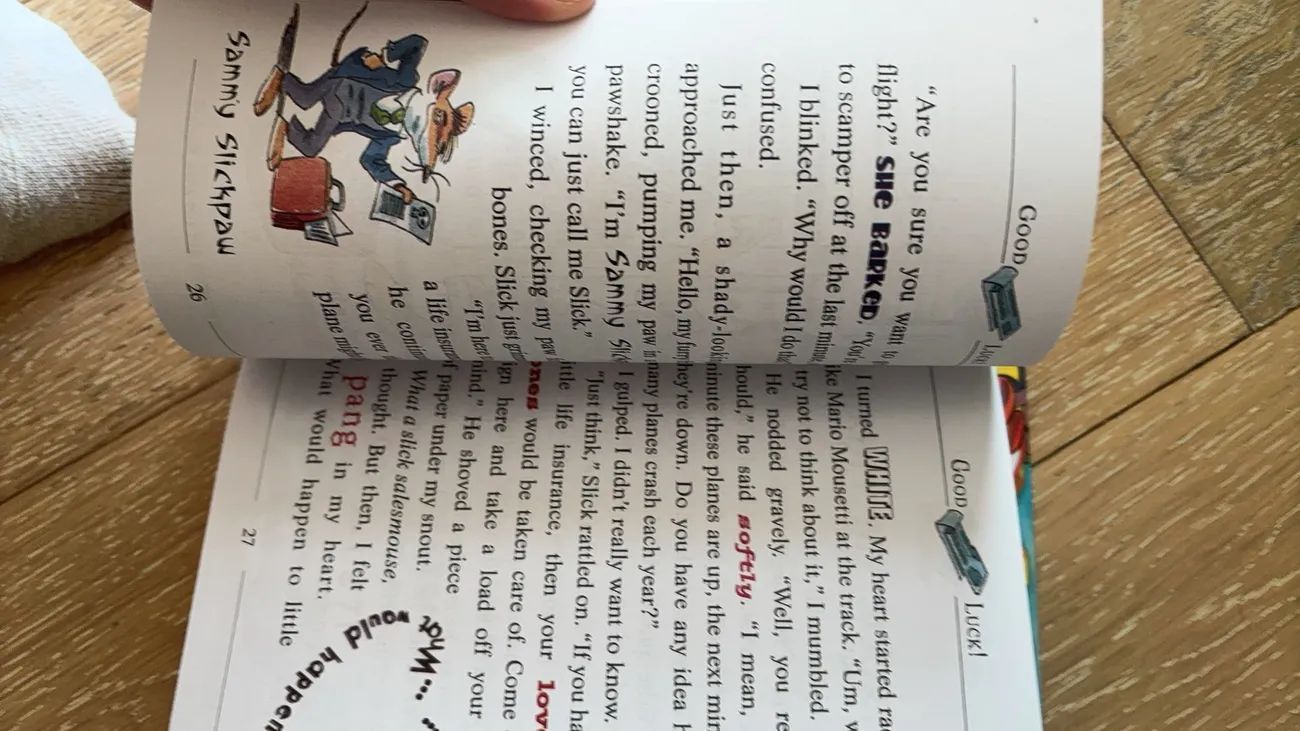 GOOD
"Are you sure you want to
flight?" SHE BARKED. "You
to scamper off at the last minute
I blinked. "Why would I do
confused.
Just then, a shady-looking
approached me. "Hello, my
crooned, pumping my paw in
pawshake. "I'm Sammy
you can just call me Slick."
I winced, checking my paw
bones. Slick just
"I'm here
a life
he
you ever
plane
Sammy Slickpaw
26
GOOD LUCK!
I turned WHITE. My heart started
like Mario Mousetti at the track. "Um,
try not to think about it," I mumbled.
He nodded gravely. "Well, you
he said softly. "I mean,
minute these planes are up, the next
they're down. Do you have any idea
many planes crash each year?"
I gulped. I didn't really want to know.
"Just think," Slick rattled on. "If you
life insurance, then your
would be taken care of. Come
here and take a load off your
He shoved a piece
of paper under my snout.
What a slick salesmouse,
thought. But then, I felt
pang in my heart.
What would happen to little
"... What
would happen
27